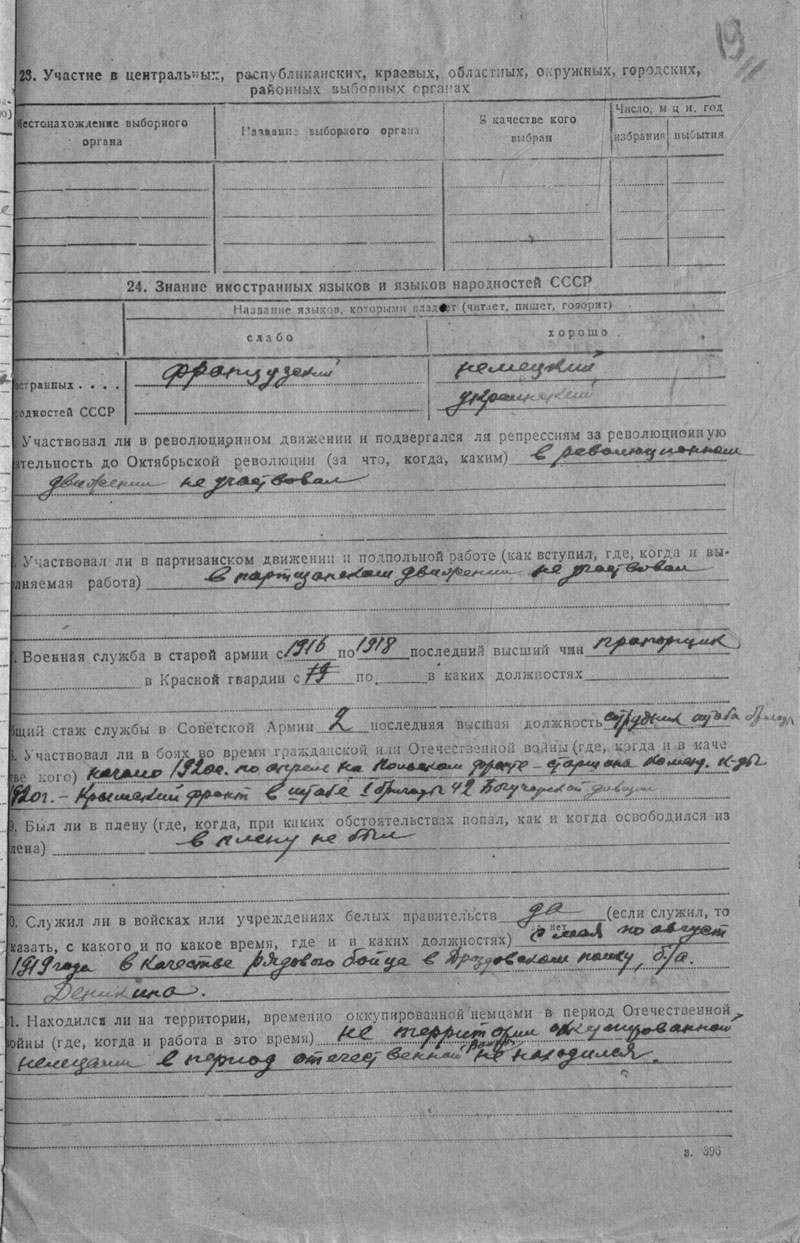 19
23. Участие в центральных, республиканских, краевых, областных, окружных, городских,
районных выборных органах
Местонахождение выборного органа
Название выборного органа
В качестве кого выбран
Число, м ц и. год
избрания
выбытия
24. Знание иностранных языков и языков народностей СССР
Название языков, которыми владеет (читает, пишет, говорит)
слабо
хорошо
остранных . . . . французский немецкий
родностей СССР украинский
Участвовал ли в революционном движении и подвергался ли репрессиям за революционную
ятельность до Октябрьской революции (за что, когда, каким) в революционном
движении не участвовал
. Участвовал ли в партизанском движении и подпольной работе (как вступил, где, когда и вы-
лняемая работа) в партизанском движении не участвовал
. Военная служба в старой армии с 1916 по 1918 последний высший чин прапорщик
в Красной гвардии с по в каких должностях
бщий стаж службы в Советской Армии 2 последняя высшая должность сотрудник штаба бригады
. Участвовал ли в боях во время гражданской или Отечественной войны (где, когда и в каче
тве кого) начало 1920г. по апрель на фронте - старшина коменд. к-ды
920г. - Крымский фронт в штабе 1 бригады 42 Богучарской дивизии
9. Был ли в плену (где, когда, при каких обстоятельствах попал, как и когда освободился из
лена) в плену не был
0. Служил ли в войсках или учреждениях белых правительств да (если служил, то
нет
казать, с какого и по какое время, где и в каких должностях) с мая по август
1919 года в качестве рядового бойца в Дроздовском полку, б/а.
Деникина.
1. Находился ли на территории, временно оккупированной немцами в период Отечественной
ойны (где, когда и работа в это время) не территории оккупированной
немцами в период отечественной войны не находился.
з. 396